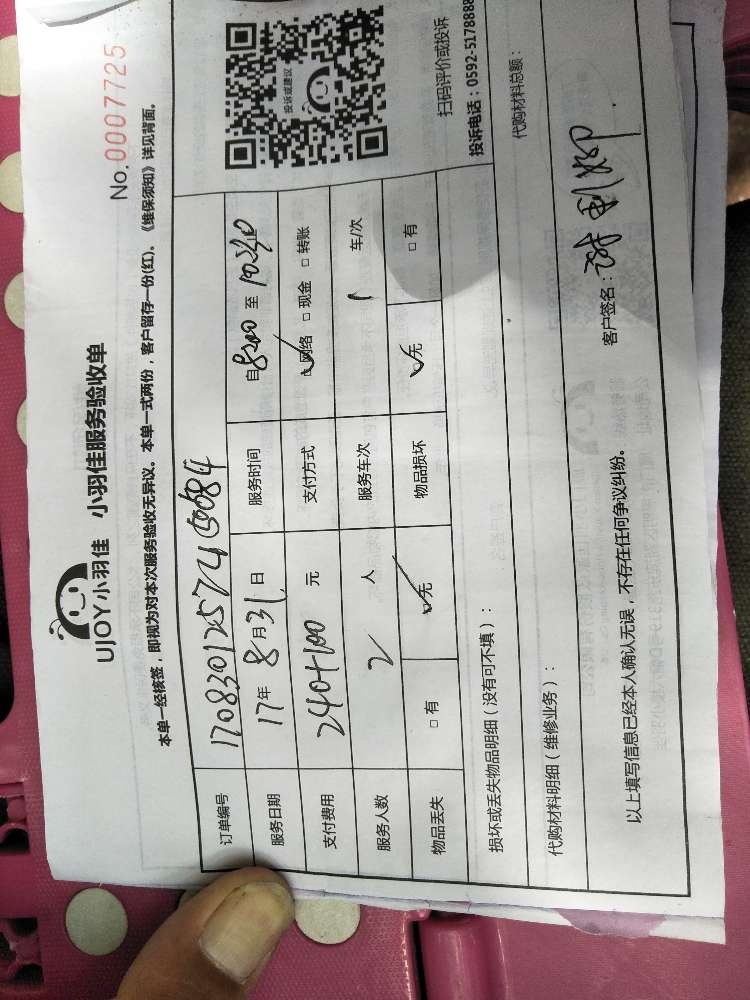 UJOY小羽佳 小羽佳服务验收单
No.0007725
本单一经核签，即视为对本次服务验收无异议。本单一式两份，客户留存一份(红)。《维保须知》详见背面。
订单编号 170830125740084
服务日期 17年8月31日 服务时间 自8:00至10:30
支付费用 240+100元 支付方式 网络 □现金 □转账
服务人数 2人 服务车次 1车/次
物品丢失 □有 □无 物品损坏 □无 □有
投诉或建议
扫码评价或投诉
投诉电话：0592-5178888
损坏或丢失物品明细（没有可不填）：
代购材料明细（维修业务）： 代购材料总额：
以上填写信息已经本人确认无误，不存在任何争议纠纷。 客户签名：